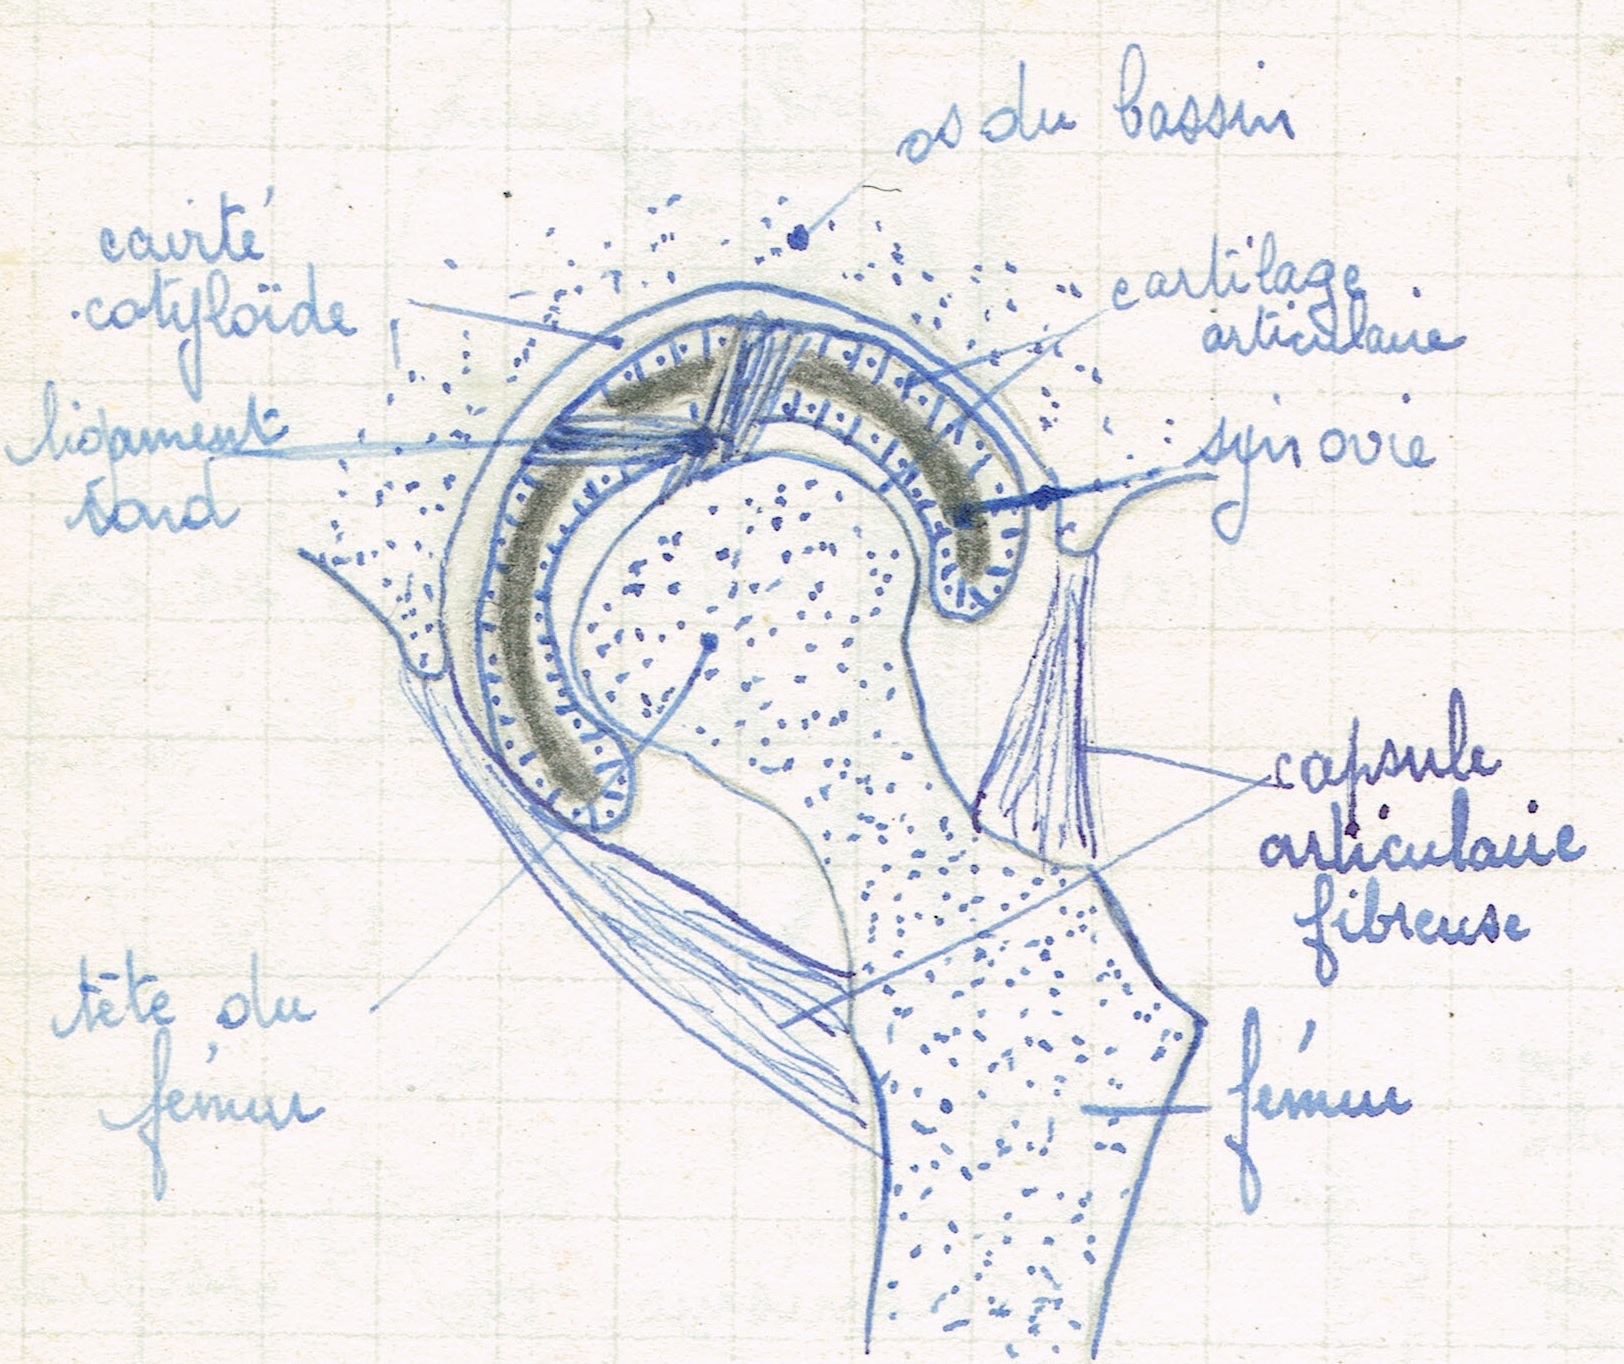 os du bassin
cavité
cotyloïde
cartilage
articulaire
ligament
rond
synovie
capsule
articulaire
fibreuse
tête du
fémur
fémur